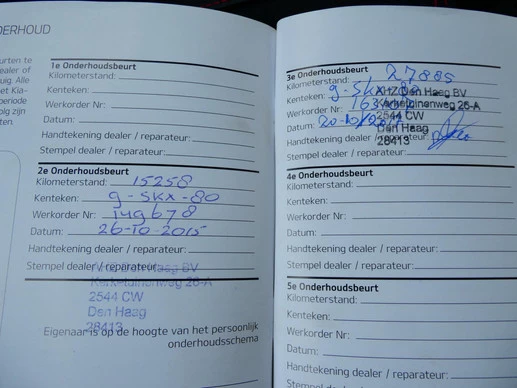 DERHOUD
urten te
ealer of
uig. Alle
et Kia-
periode
olg zijn
ten.
1e Onderhoudsbeurt
Kilometerstand:
Kenteken:
Werkorder Nr:
Datum:
Handtekening dealer / reparateur:
Stempel dealer / reparateur:
2e Onderhoudsbeurt
Kilometerstand: 15258
Kenteken: 9-SKX-80
Werkorder Nr: 149678
Datum: 26-10-2015
Handtekening dealer / reparateur:
Stempel dealer / reparateur:
Haag BV
26-A
2544 CW
Den Haag
28413
Eigenaar is op de hoogte van het persoonlijk
onderhoudsschema
3e Onderhoudsbeurt
Kilometerstand: 27885
Kenteken: 9-SKX
Werkorder Nr: 163
Datum: 20-10
Den Haag BV
26-A
2544 CW
Den Haag
28413
Handtekening dealer / reparateur:
Stempel dealer / reparateur:
4e Onderhoudsbeurt
Kilometerstand:
Kenteken:
Werkorder Nr:
Datum:
Handtekening dealer / reparateur:
Stempel dealer / reparateur:
5e Onderhoudsbeurt
Kilometerstand:
Kenteken:
Werkorder Nr:
Datum:
Handtekening dealer / reparateur:
Stempel dealer / reparateur: